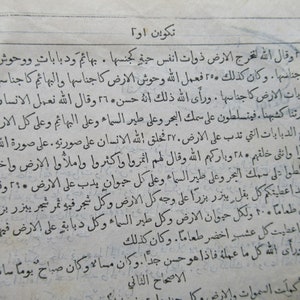 تكوين ١و٢
وقال الله لتخرج الارض ذوات انفس حية كجنسها. بهائم ودبابات ووحوش
كجناسها. وكان كذلك ٢٥ فعمل الله وحوش الارض كاجناسها والبهائم كاجناسها
الارض كاجناسها. ورأى الله ذلك انه حسن ٢٦ وقال الله نعمل الانسان
كشبهنا. فيتسلطون على سمك البحر وعلى طير السماء وعلى البهائم وعلى كل الارض
الدبابات التي تدب على الارض. ٢٧ فخلق الله الانسان على صورته. على صورة الله
وانثى خلقهم ٢٨ وباركهم الله وقال لهم اثمروا واكثروا واملأوا الارض واخضعوها
على سمك البحر وعلى طير السماء وعلى كل حيوان يدب على الارض ٢٩ وقال
اعطيتكم كل بقل يبزر بزرا على وجه كل الارض وكل شجر فيه ثمر شجر يبزر بزرا
طعاما ٣٠ ولكل حيوان الارض وكل طير السماء وكل دبابة على الارض فيها
اعطيت كل عشب اخضر طعاما. وكان كذلك
ورأى الله كل ما عمله فاذا هو حسن جدا. وكان مساء وكان صباح يوما سادسا
الاصحاح الثاني
فأكملت السموات والارض وكل جندها